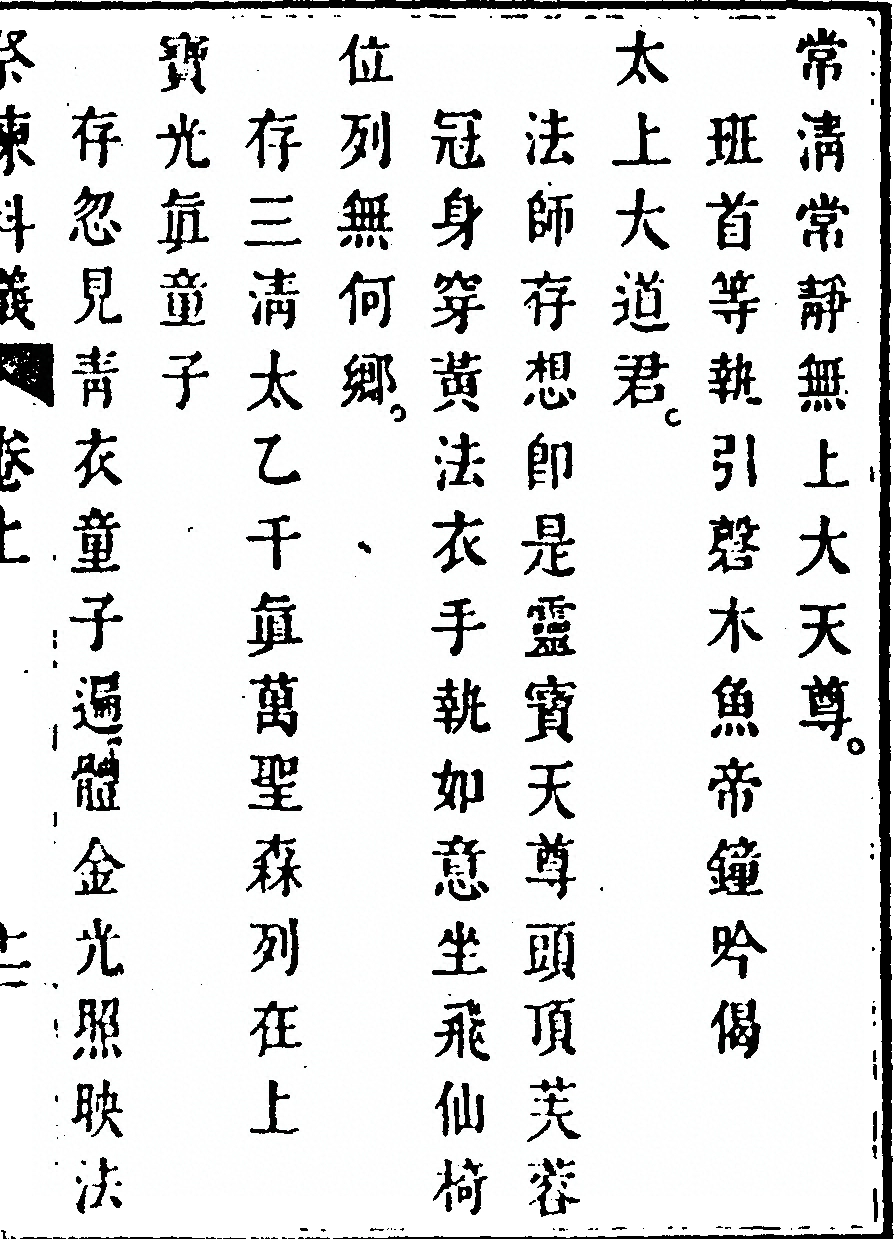 常清常靜無上大天尊。
班首等執引磬木魚帝鐘吟偈
太上大道君。
法師存想卽是靈寶天尊頭頂芙蓉
冠身穿黃法衣手執如意坐飛仙椅
位列無何鄉。
存三清太乙千眞萬聖森列在上
寶光眞童子
存忽見青衣童子遍體金光照映法
祭煉科儀 卷上